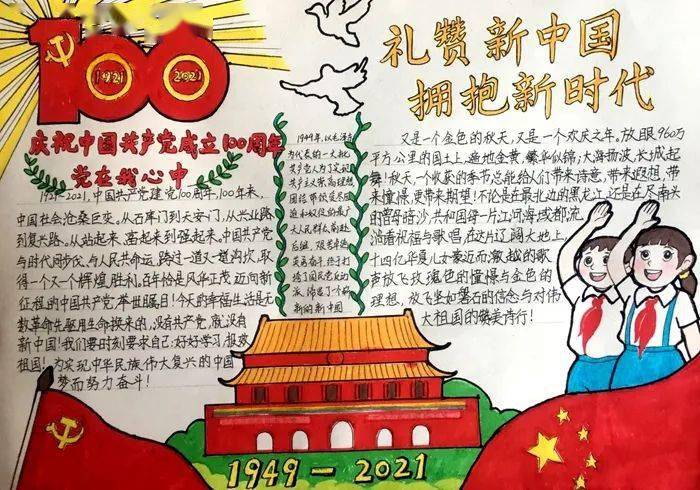 100
1921
2021
庆祝中国共产党成立100周年
党在我心中
1921-2021,中国共产党建党100周年,100年来,
中国社会沧桑巨变。从石库门到天安门,从兴业路
到复兴路。从站起来、富起来到强起来。中国共产党
与时代同步伐、与人民共命运,跨过一道又一道沟坎,取
得一个又一个辉煌胜利。百年恰是风华正茂,迈向新
征程的中国共产党,举世瞩目!今天的幸福生活是无
数革命先驱用生命换来的,没有共产党,就没有
新中国!我们要时刻要求自己:好好学习,报效
祖国!为实现中华民族伟大复兴的中国
梦而努力奋斗!
1949年,以毛泽东
为代表的一大批
共产党人为了实现
共产主义崇高理想
团结带领
大人民群众,前赴
后继,艰苦卓绝
英勇奋斗,终于打
垮了国民党反动
派,缔造了一个崭
新的新中国
礼赞新中国
拥抱新时代
又是一个金色的秋天,又是一个欢庆之年,放眼960万
平方公里的国土上,遍地金黄,繁华似锦;大海扬波,长城起
舞!秋天,一个收获的季节总能给人们带来诗意,带来遐想,带
来憧憬,更带来期望!不论是在最北边的黑龙江,还是在尽南头
的曾母暗沙,共和国每一片江河海域都流
淌着祝福与歌唱,在这片辽阔大地上,
十四亿华夏儿女豪迈而激越的歌
声放飞玫瑰色的憧憬与金色的
理想,放飞坚如磐石的信念与对伟
大祖国的赞美诗行!
1949-2021